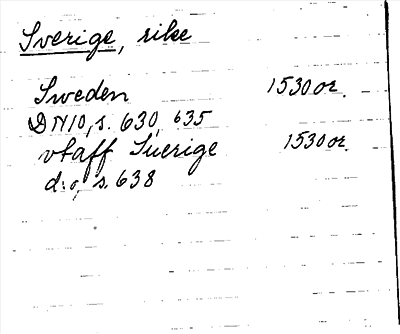 Sverige, rike
Sweden 1530 or.
DN10, s. 630, 635
vtaff Suerige 1530 or.
d:o, s. 638